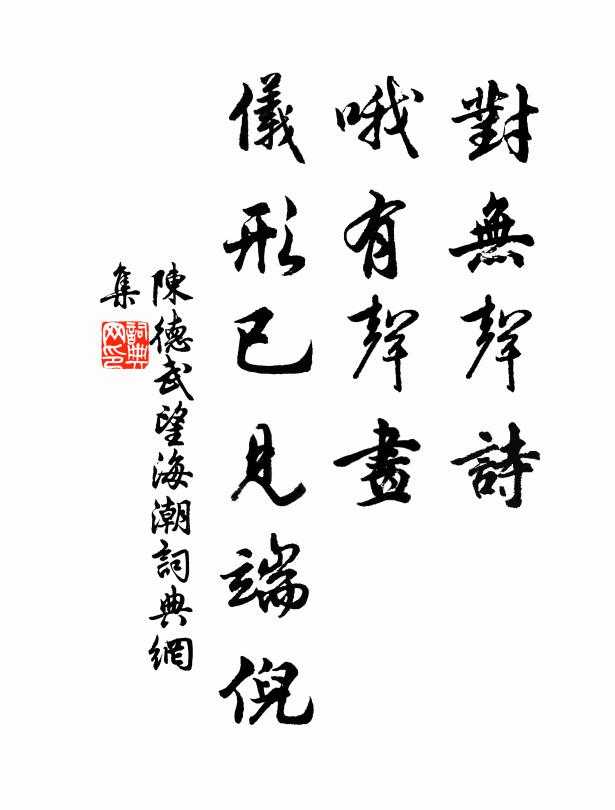 對無聲詩
哦有聲畫
儀形已見端倪
陳德武望海潮詞典網
集
詞典网印